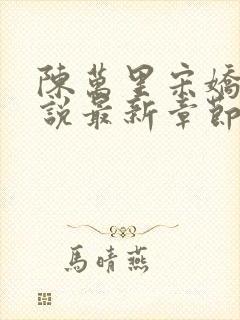 陳萬里宋嬌
說最新章節
馬晴燕